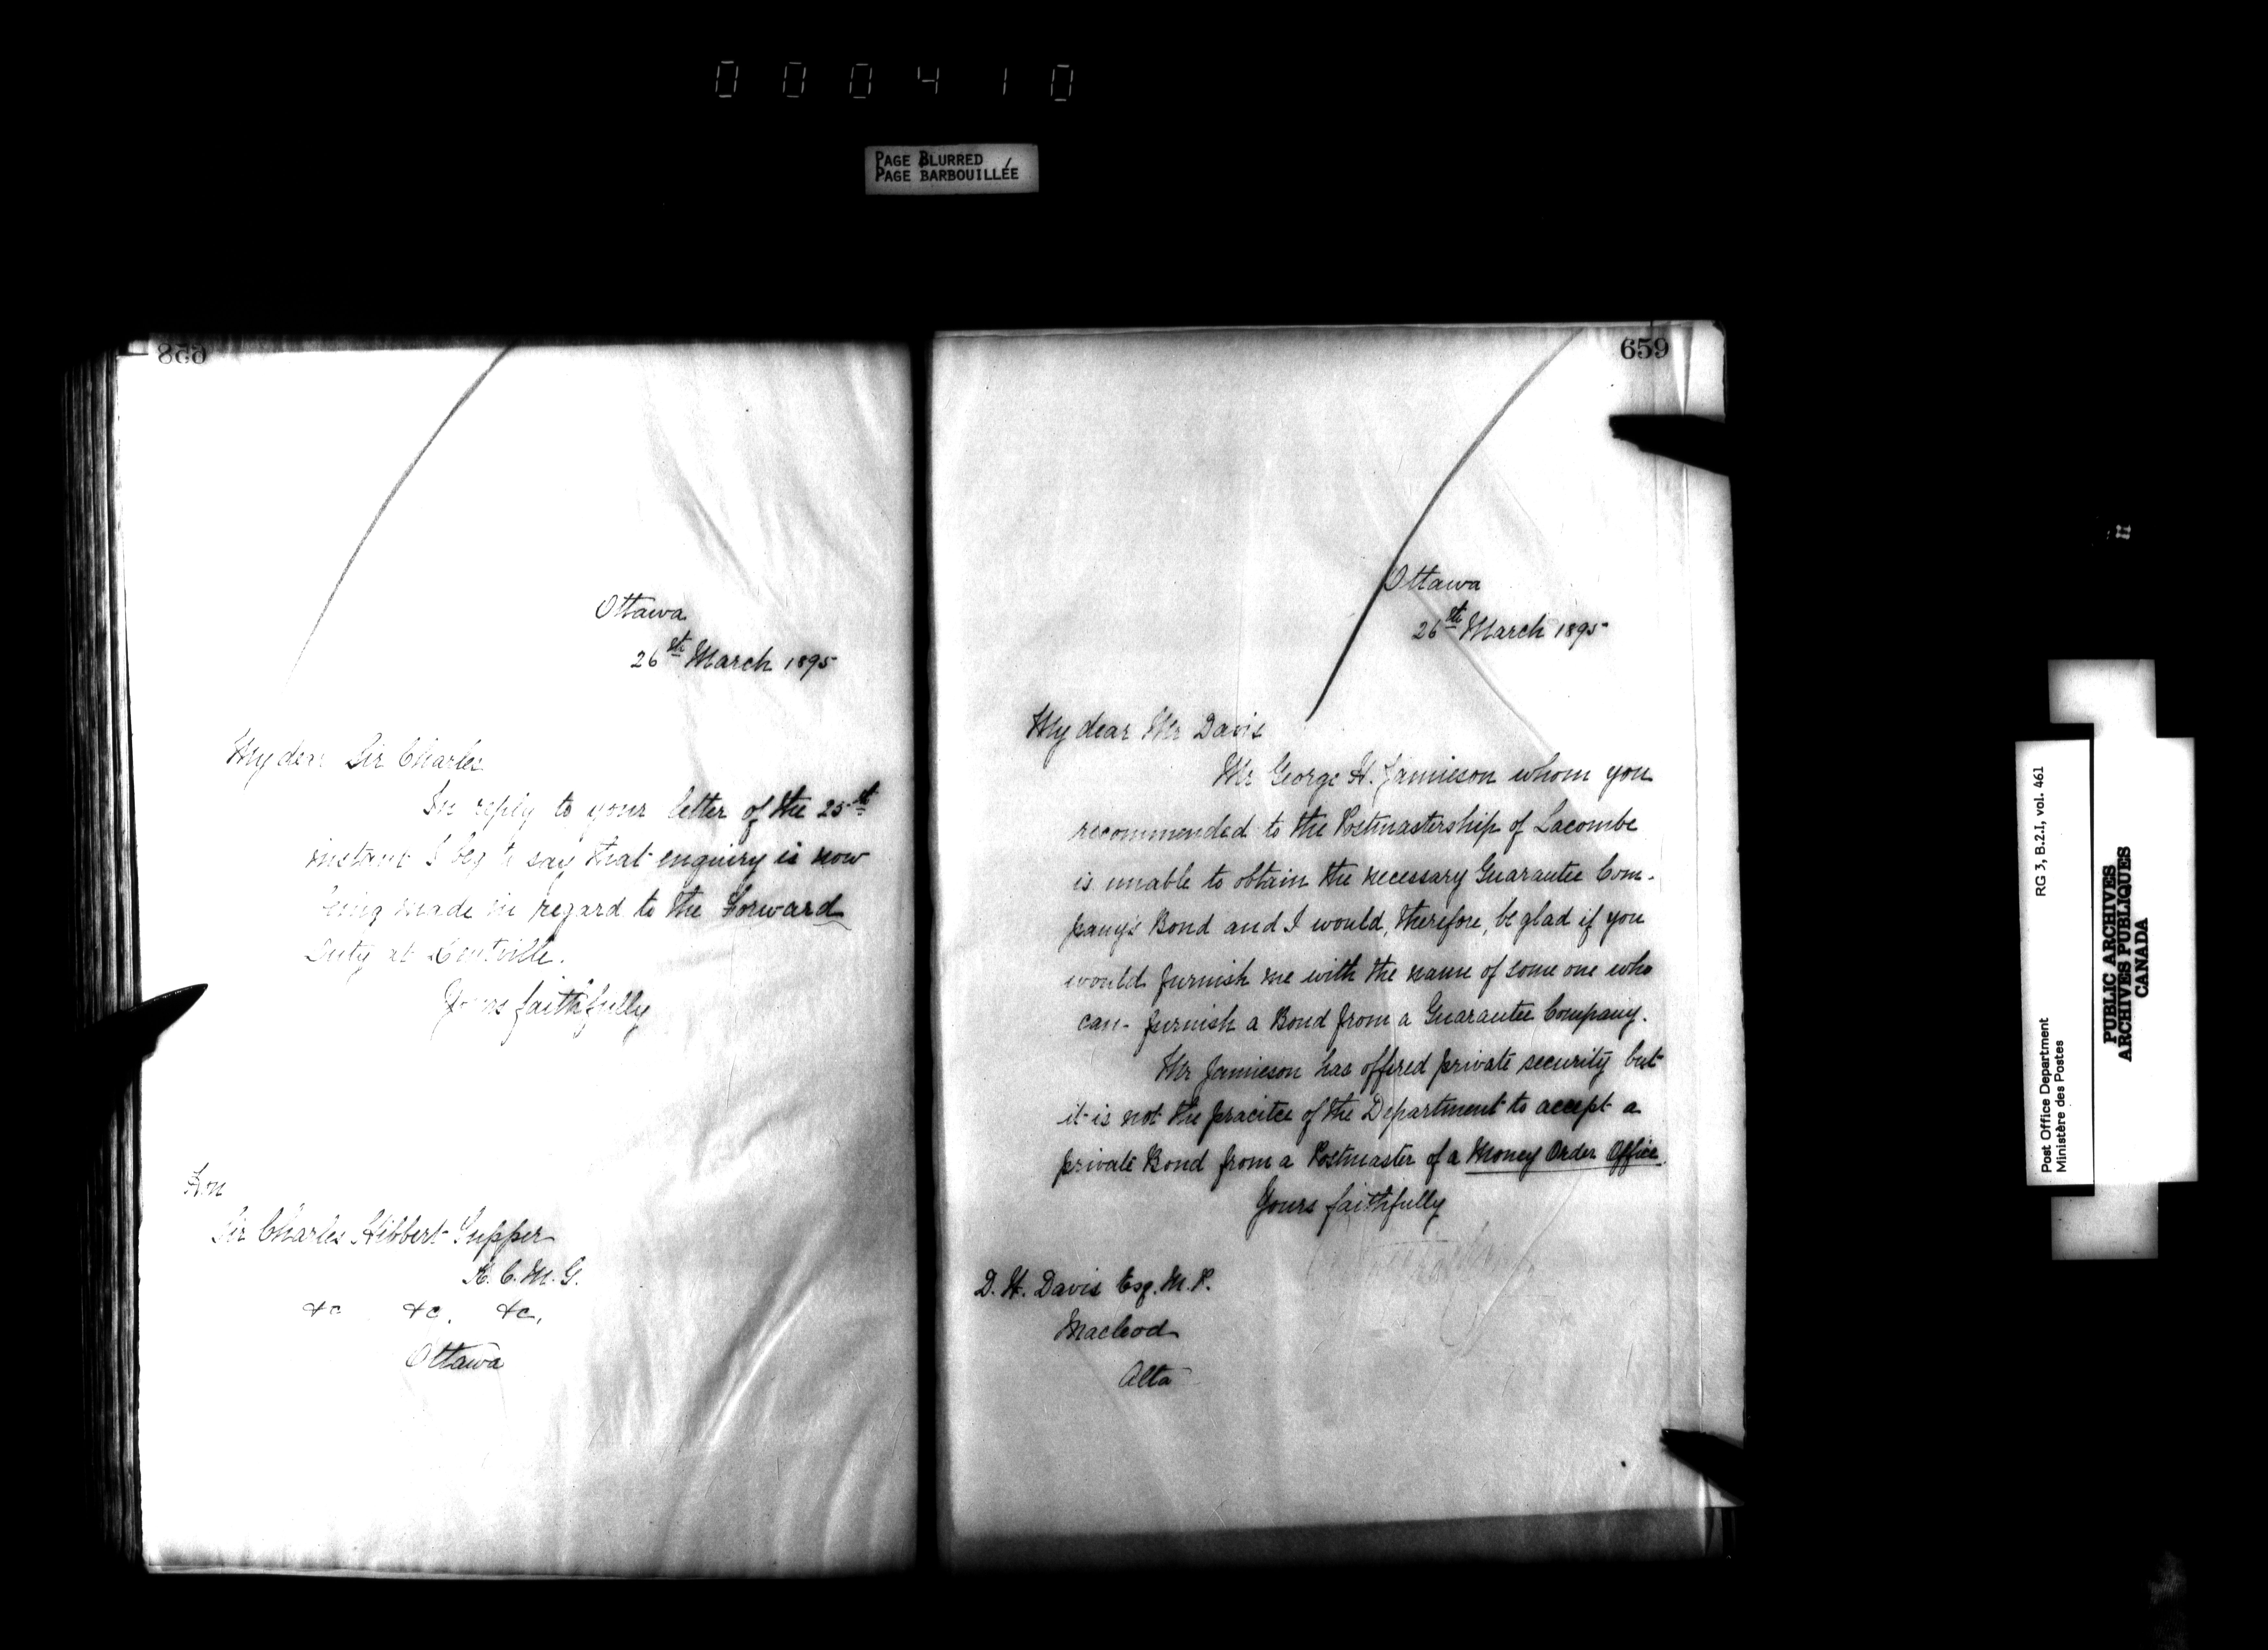 000410
PAGE BLURRED
PAGE BARBOUILLÉE
658
Ottawa
26th March 1895
My dear Sir Charles
In reply to your letter of the 25th
instant I beg to say that enquiry is now
being made in regard to the Forward
Duty at Kentville.
Yours faithfully
Hon
Sir Charles Hibbert Tupper
K.C.M.G.
&c &c. &c,
Ottawa
659
Ottawa
26th March 1895
My dear Mr Davis
Mr George H. Jamieson whom you
recommended to the Postmastership of Lacombe
is unable to obtain the necessary Guarantee Com-
pany's Bond and I would, therefore, be glad if you
would furnish me with the name of some one who
can furnish a Bond from a Guarantee Company.
Mr Jamieson has offered private security but
it is not the pracitce of the Department to accept a
private Bond from a Postmaster of a Money Order Office.
Yours faithfully
D. H. Davis Esq. M.P.
Macleod
Alta
Post Office Department
Ministère des Postes
RG 3, B.2.1, vol. 461
PUBLIC ARCHIVES
ARCHIVES PUBLIQUES
CANADA